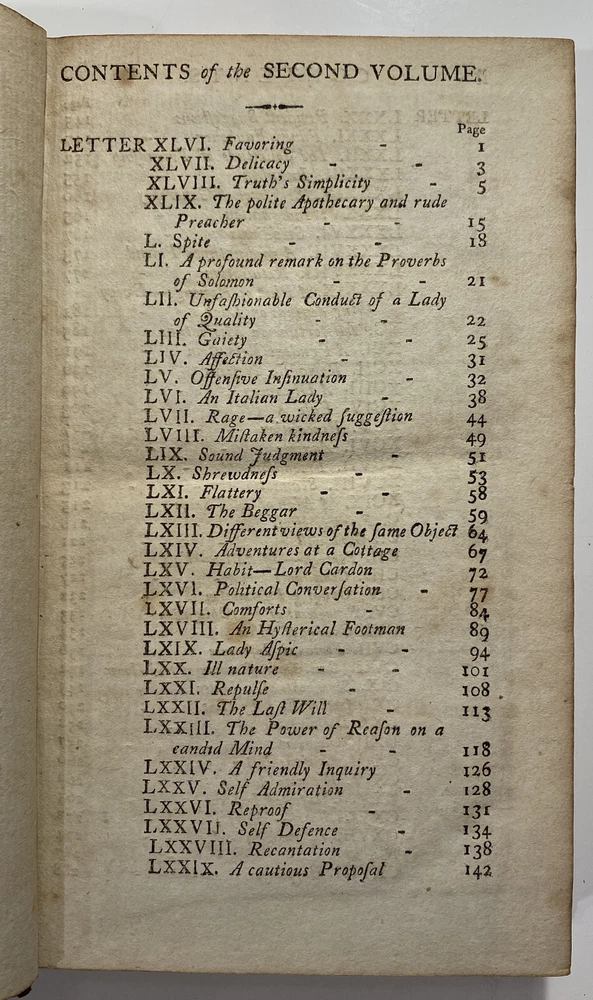 CONTENTS of the SECOND VOLUME.
Page
LETTER XLVI. Favoring - 1
XLVII. Delicacy - - 3
XLVIII. Truth's Simplicity - 5
XLIX. The polite Apothecary and rude
Preacher - - 15
L. Spite - - 18
LI. A profound remark on the Proverbs
of Solomon - - 21
LII. Unfaſhionable Conduct of a Lady
of Quality - - 22
LIII. Gaiety - - 25
LIV. Affection - 31
LV. Offenſive Inſinuation - 32
LVI. An Italian Lady - 38
LVII. Rage—a wicked ſuggeſtion 44
LVIII. Miſtaken kindneſs 49
LIX. Sound Judgment - 51
LX. Shrewdneſs - 53
LXI. Flattery - - 58
LXII. The Beggar - 59
LXIII. Different views of the ſame Object 64
LXIV. Adventures at a Cottage 67
LXV. Habit—Lord Cardon 72
LXVI. Political Converſation - 77
LXVII. Comforts - 84
LXVIII. An Hyſterical Footman 89
LXIX. Lady Aſpic - - 94
LXX. Ill nature - - 101
LXXI. Repulſe - 108
LXXII. The Laſt Will - 113
LXXIII. The Power of Reaſon on a
candid Mind - - 118
LXXIV. A friendly Inquiry 126
LXXV. Self Admiration - 128
LXXVI. Reproof - 131
LXXVII. Self Defence - 134
LXXVIII. Recantation - 138
LXXIX. A cautious Propoſal 142